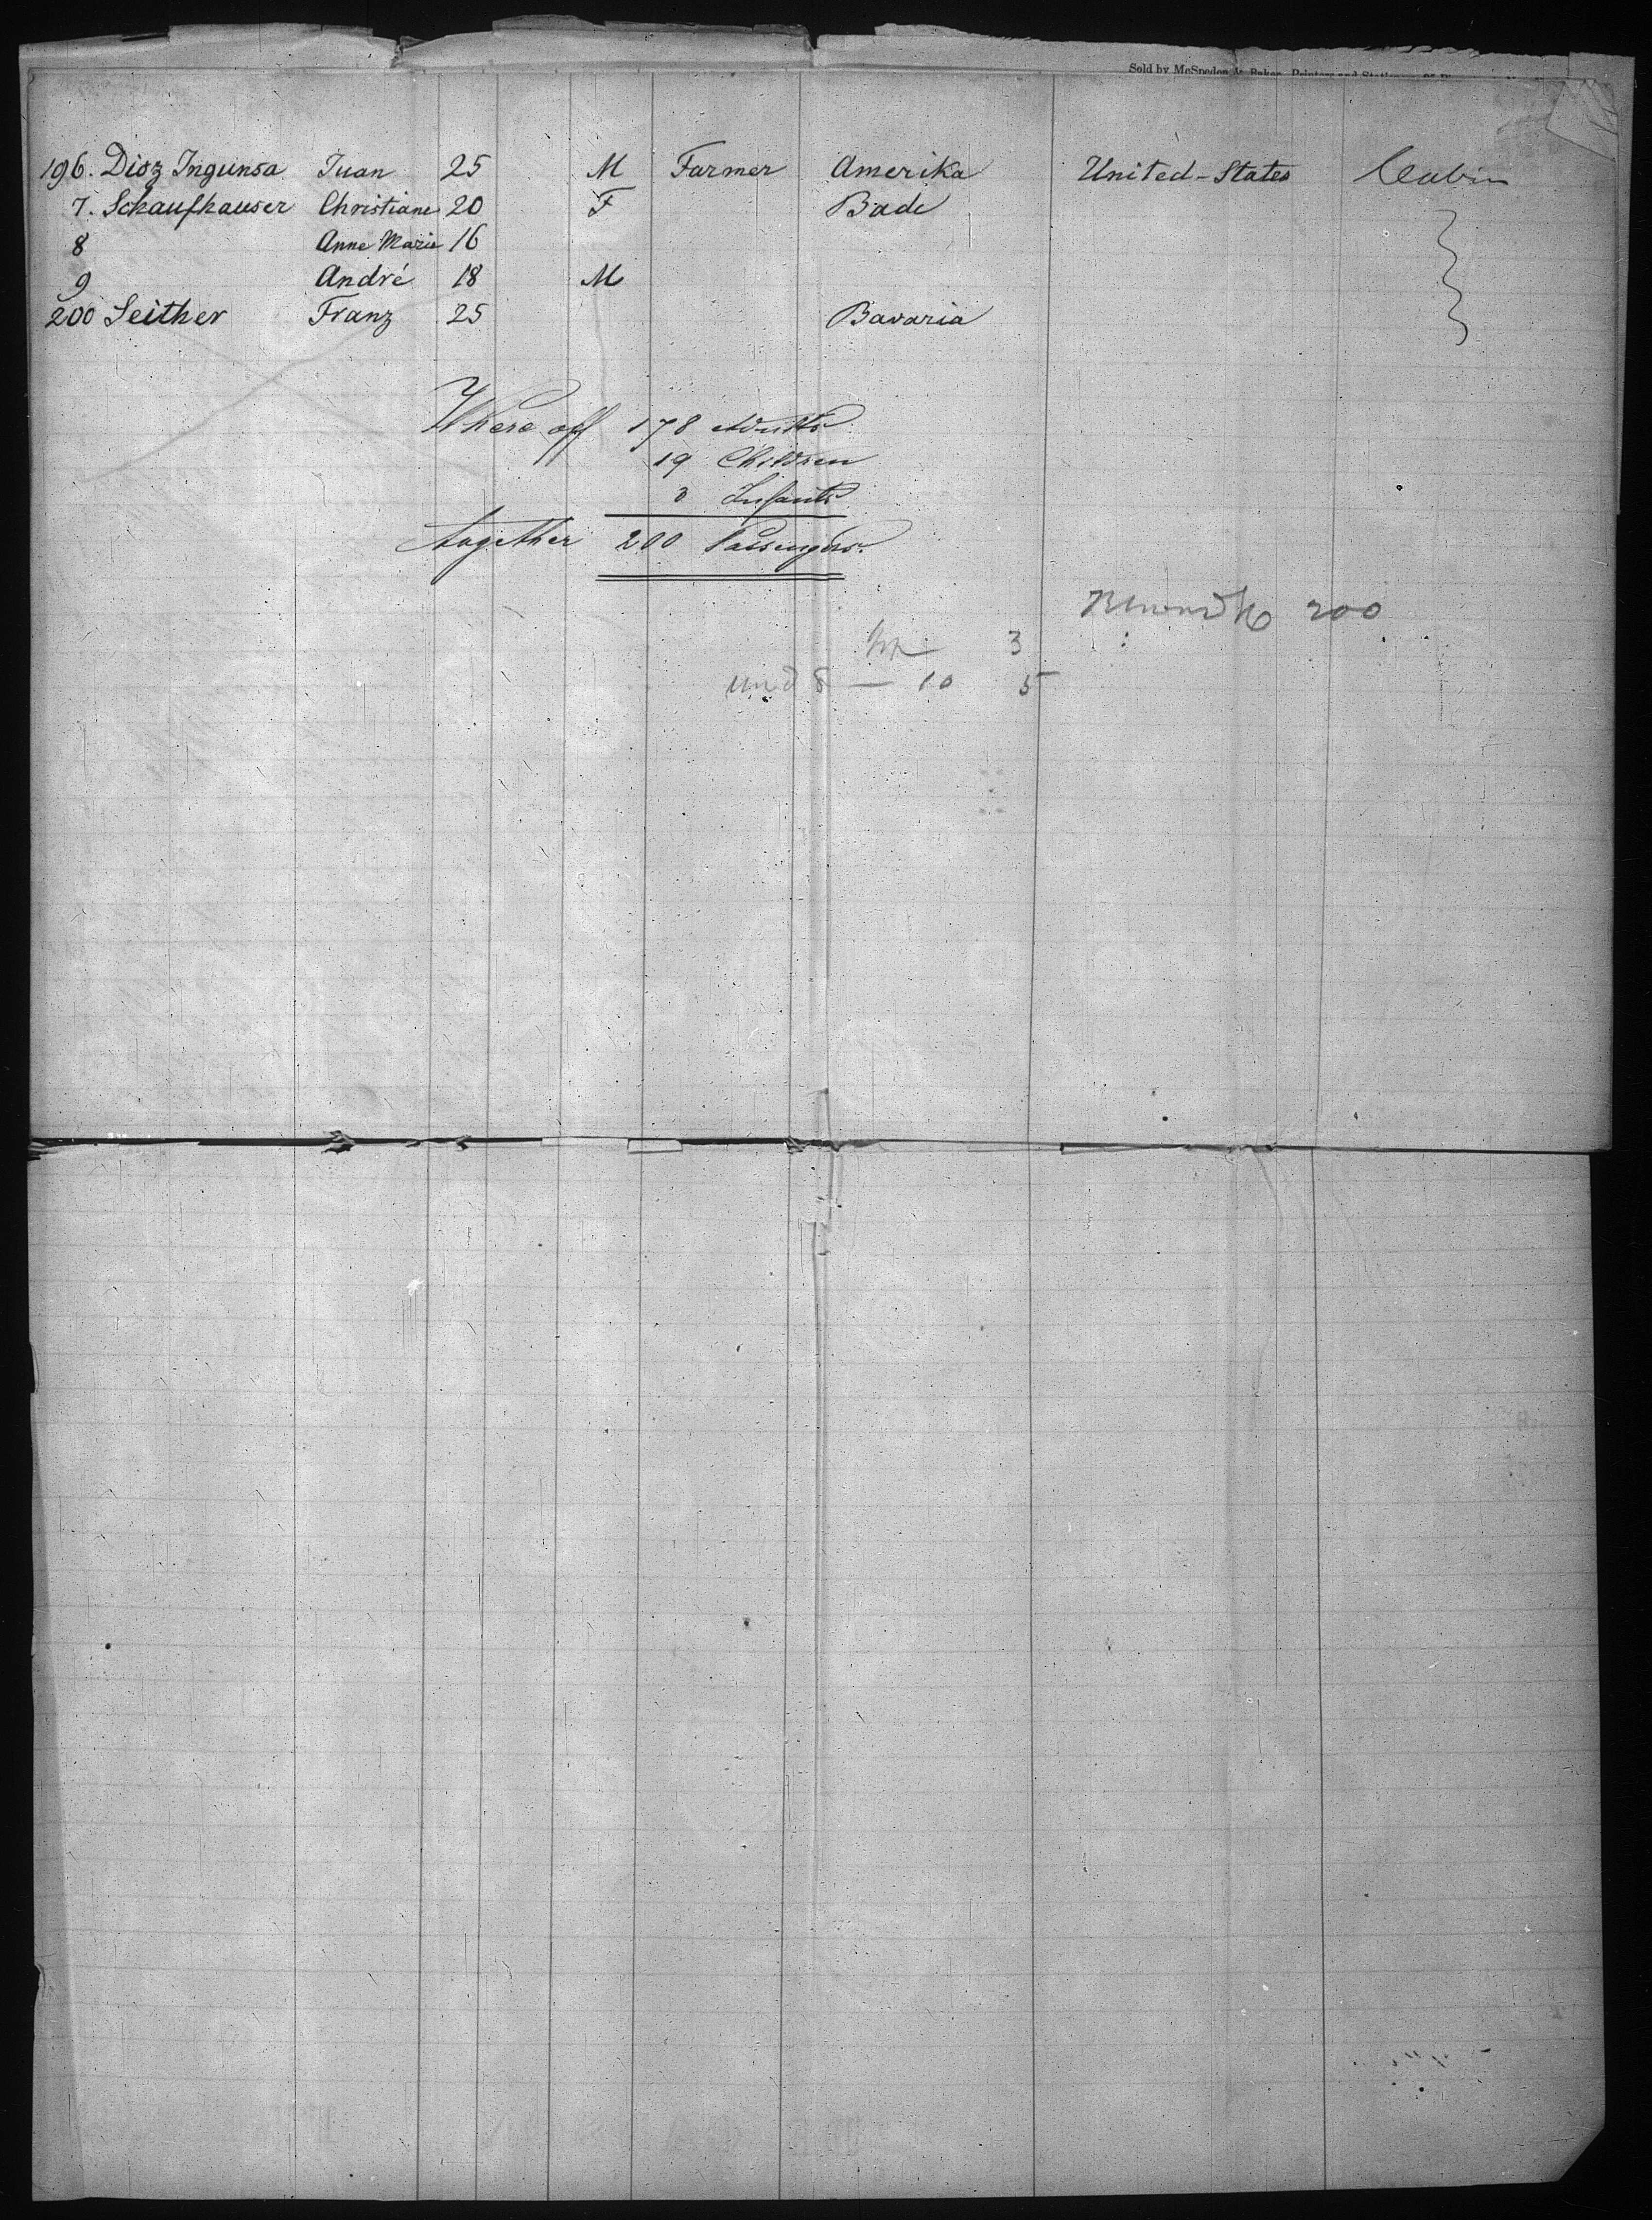 Sold by McSpedon & Baker, Printers and Stationers
196. Dioz Ingunsa Juan 25 M Farmer Amerika United-States Cabin
7. Schaufhauser Christiane 20 F Bade
8 Anne Marie 16
9 André 18 M
200 Seither Franz 25 Bavaria
Where off 178 Adults
19 Children
3 Infants
together 200 Passengers.
200
3
und 8 — 10 5